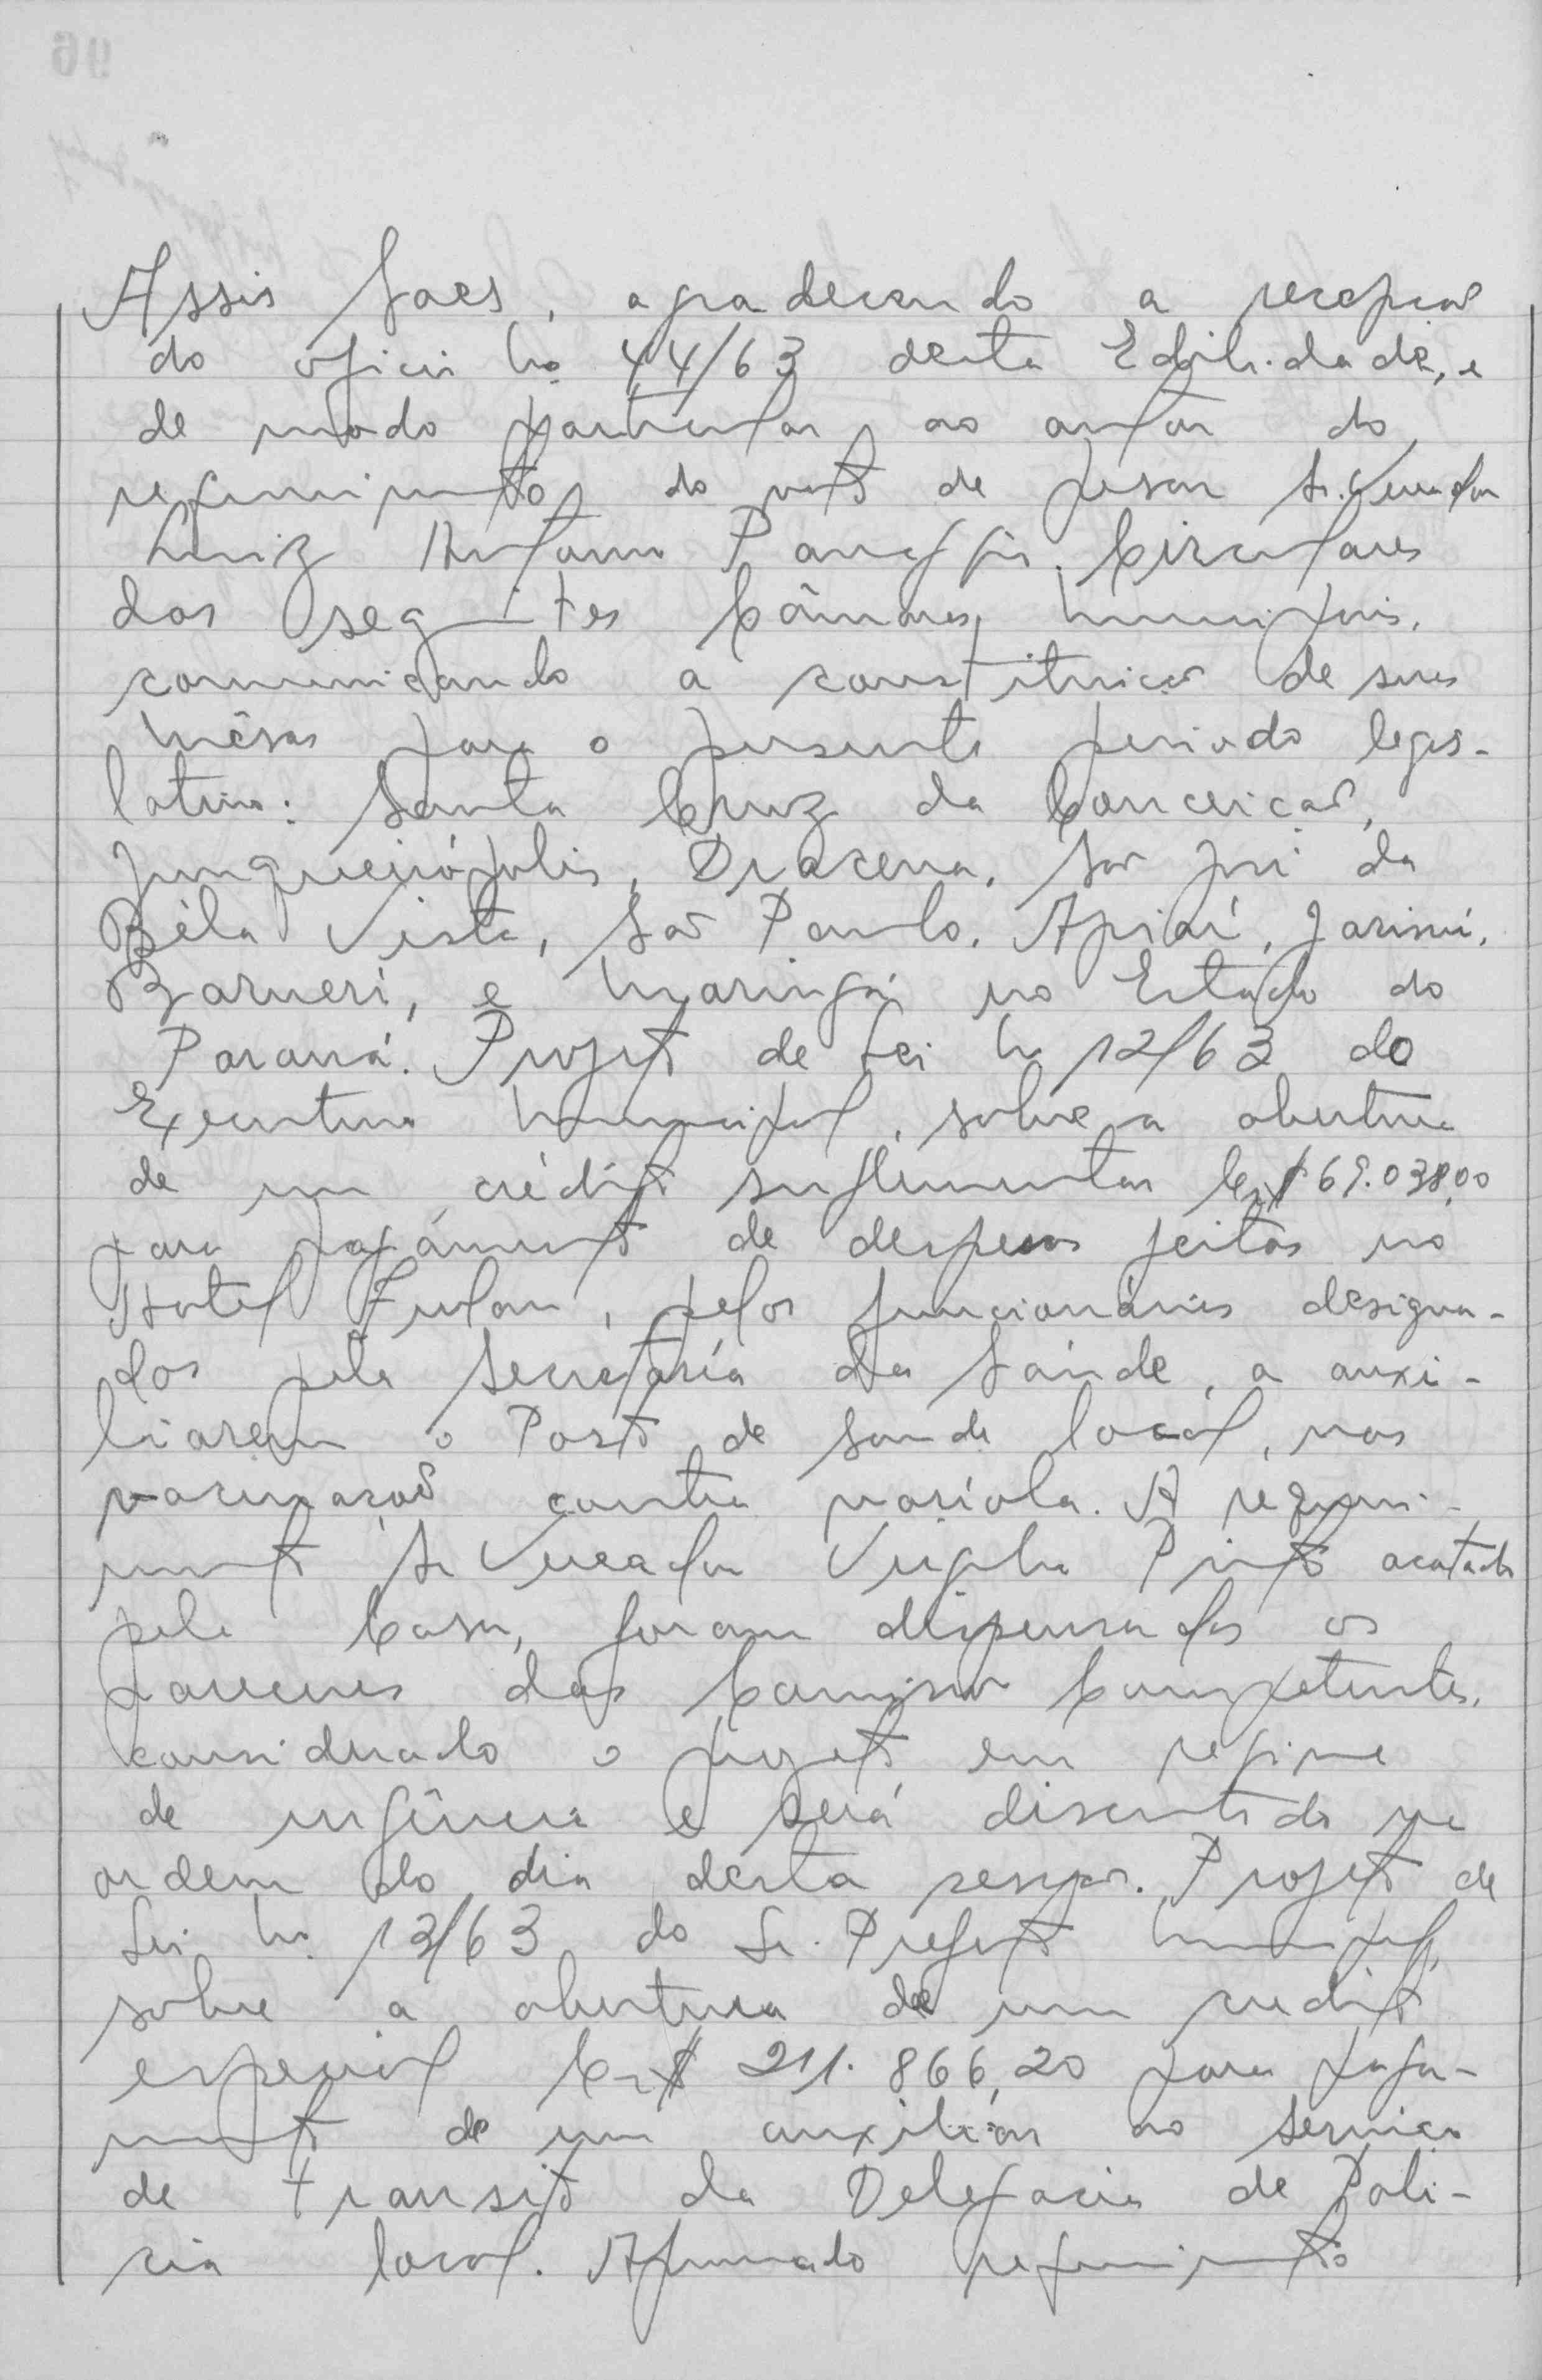 Assis Goes, agradecendo a recepção
do oficio nº 44/63 desta Edilidade, e
de modo particular, ao autor do
requerimento do voto de pesar Sr. Vereador
Luiz Antonio Circulares
das seguintes Câmaras Municipais,
comunicando a constituição de suas
Mêsas para o presente periodo legis-
lativo: Santa Cruz da Conceição,
Junqueirópolis, Dracena, São José da
Béla Vista, São Paulo, Apiaí, Jarinú,
Barueri, e Maringá no Estado do
Paraná. Projeto de Lei nº 12/63 do
Executivo Municipal, sobre a abertura
de um crédito suplementar Cr$ 69.038,00
para pagamento de despesas feitas no
Hotel Zulan, pelos funcionários designa-
dos pela Secretaria da Saúde, a auxi-
liarem o Posto de Saude local, nas
vacinação contra varíola. A requeri-
mento Sr Vereador Virgilio Pinto acatado
pela Casa, foram dispensados os
pareceres das Comissão Competentes,
considerado o projeto em regime
de urgência e será discutido na
ordem do dia desta sessão. Projeto de
Lei nº 13/63 do Sr. Prefeito Municipal,
sobre a abertura de um credito
especial Cr$ 211.866,20 para paga-
mento de um auxiliar ao serviço
de transito da Delegacia de Poli-
cia local. Aprovado requerimento